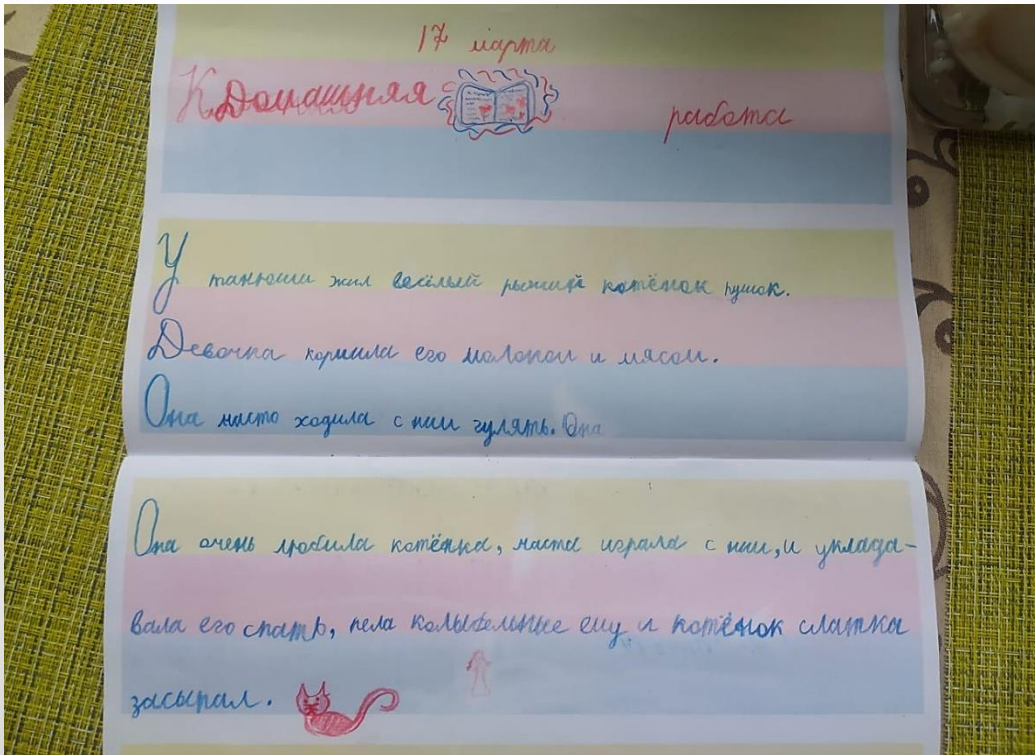 17 марта
КДомашняя работа
У танюши жил весёлый рыжий котёнок пушок.
Девочка кормила его молоком и мясом.
Она часто ходила с ним гулять. Она
Она очень любила котёнка, часта играла с ним, и уклада-
вала его спать, пела колыбельные ему и котёнок слатка
засыпал.